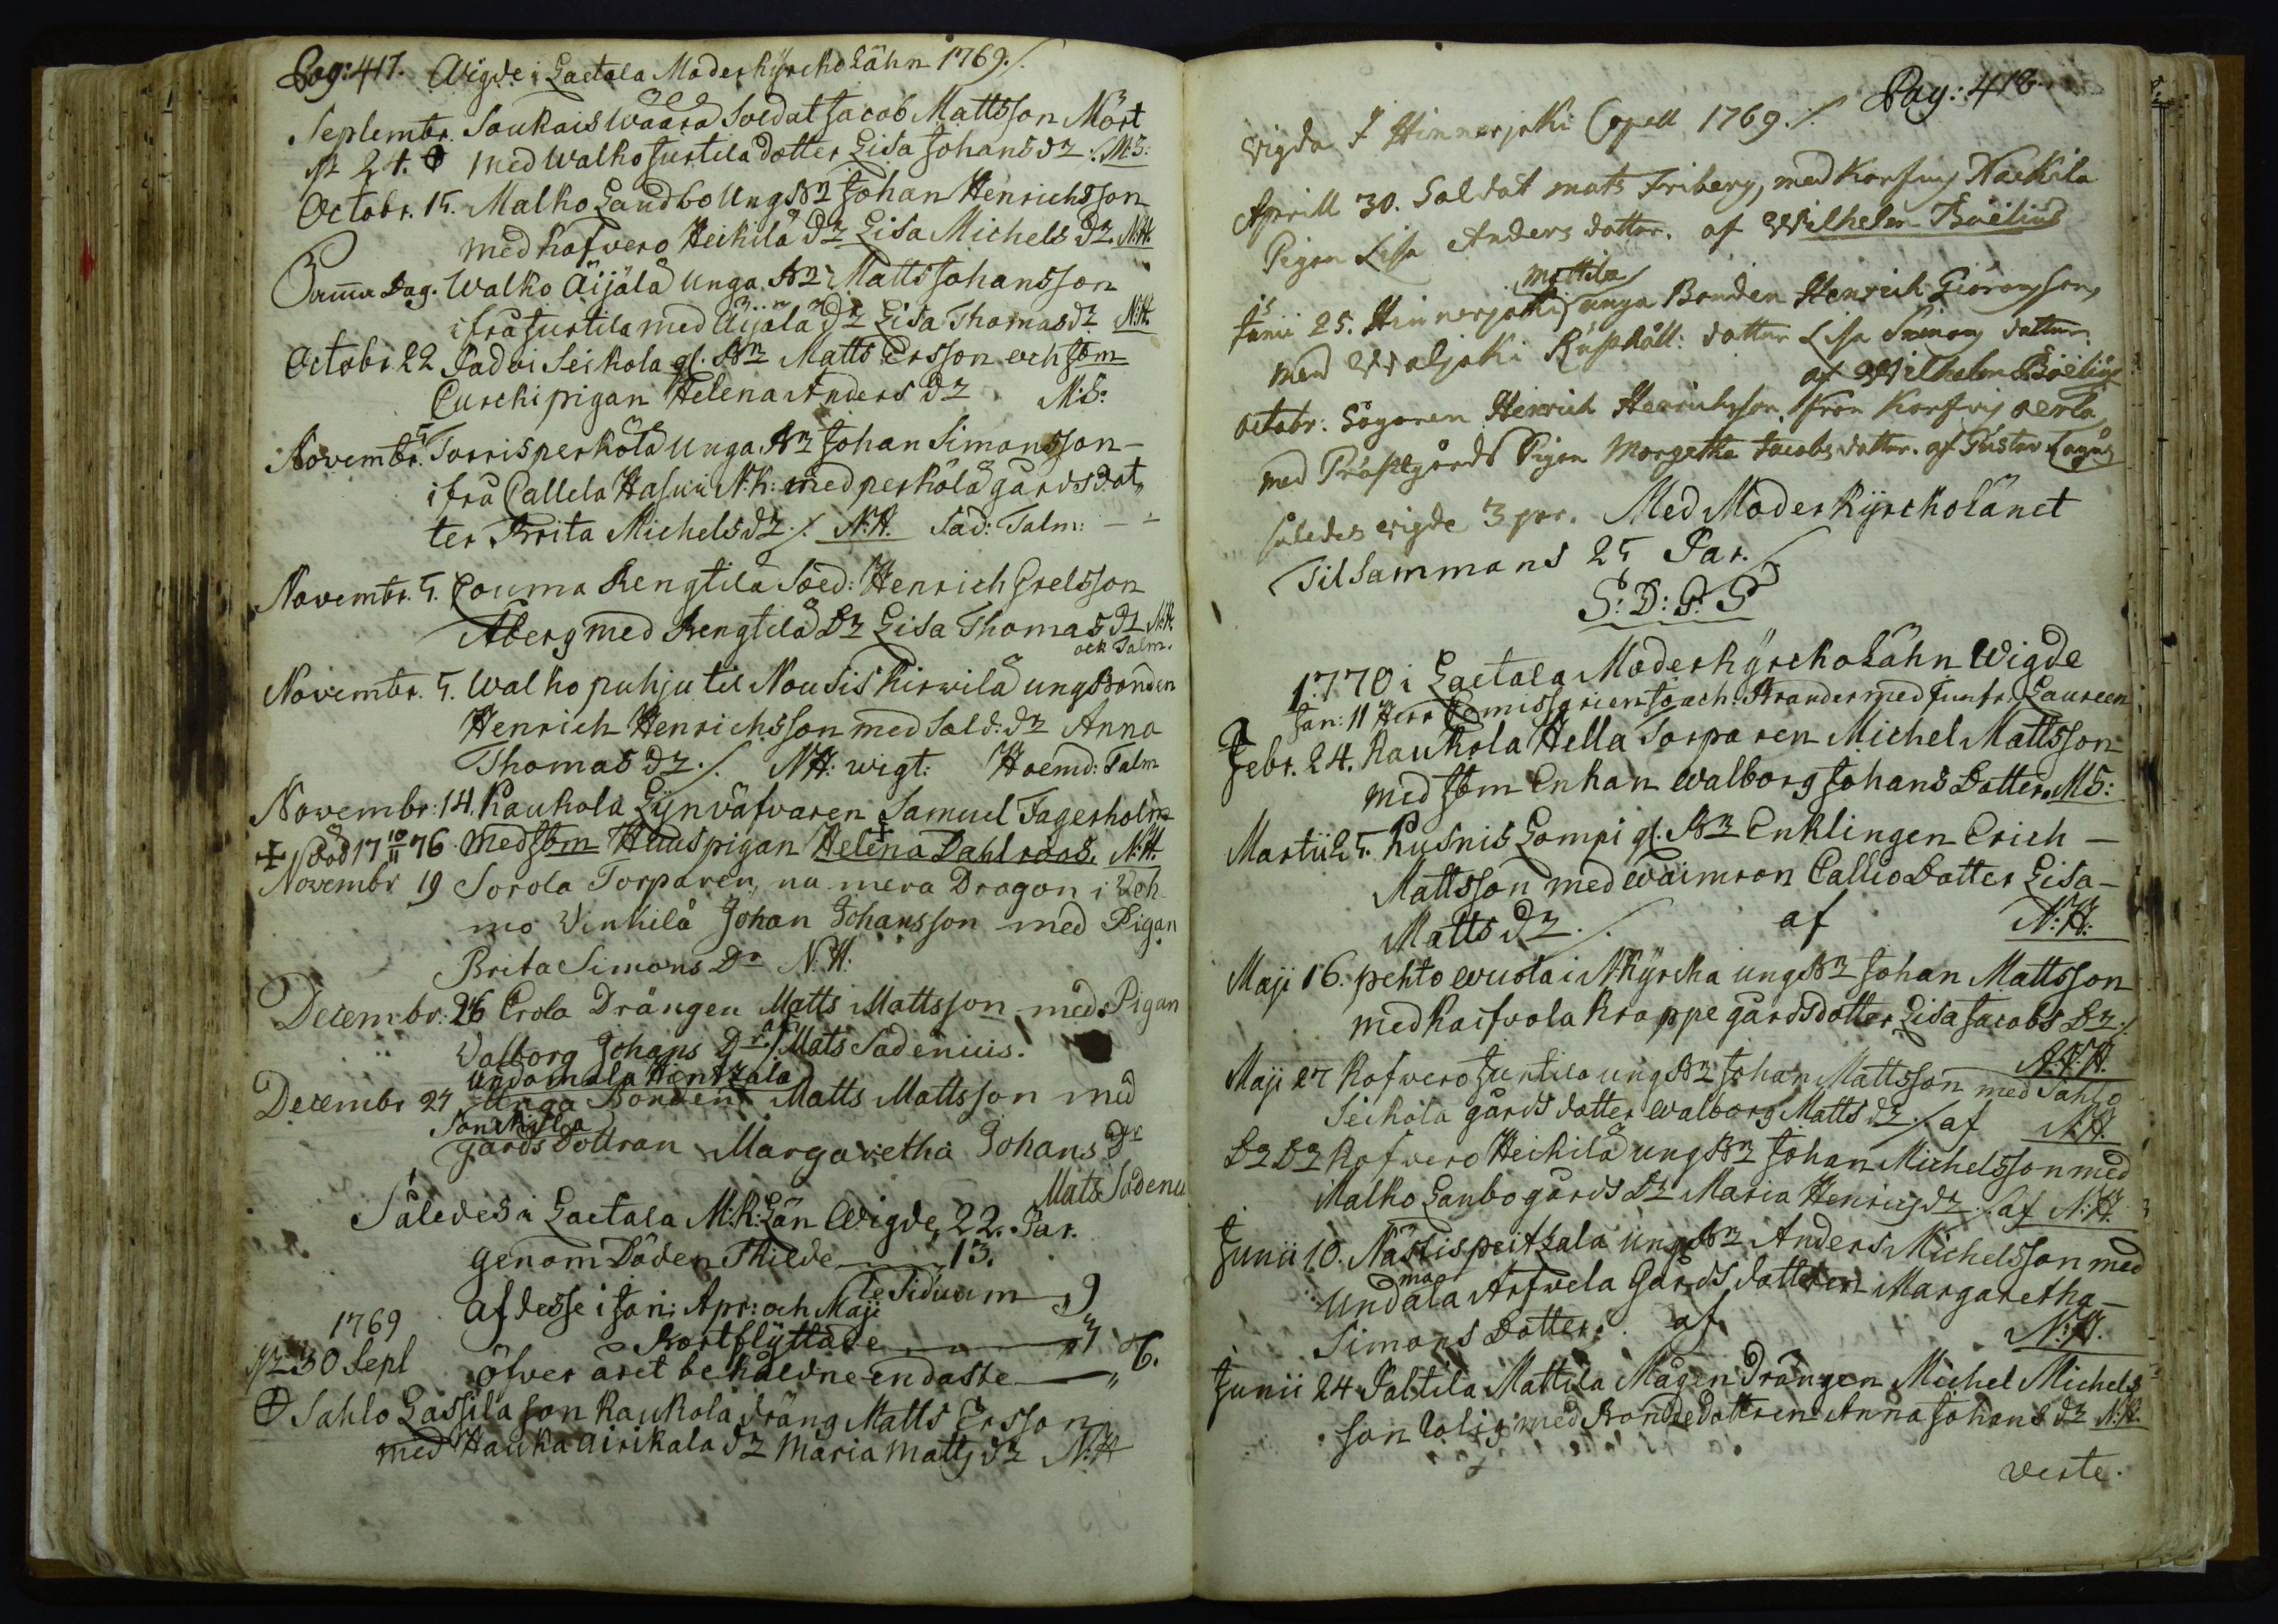 Pag: 417. Wigde i Laetala Moderkÿrcko Lähn 1769./.
Septembr. Soukais Wäärä Soldat Jacob Mattsson Mört
24. med Walko Juttila dotter Lisa Johans dr: M:S:
Octobr. 15. Malko Landbo Ung Bn Johan Henrichsson
med Kafvero Heikilä dr Lisa Michels dr. N:H.
Samma Dag. Walko Äijälä Unga Bn Matts Johansson
ifrå Juttila med Äijälä dr Lisa Thomas dr N:H.
Octobr. 22 Padvi Seikola gl. Bn Matts Ersson och Jbm
Curckipigan Helena Anders dr M:S:
Novembr. 5. Torris perkölä Unga Bn Johan Simonsson
ifrå Callela Hasui N.K: med perkölä gårds dot
ter Brita Michels dr./. N:H. Sad: Talm: - -
Novembr. 5. Couma Rengtilä Sold: Henrich Grelsson
Åberg med Rengtilä Dr Lisa Thomas dr N:H.
ock Talm.
Novembr. 5. Walko puhju til Nousis Kirwilä ung Bonden
Henrich Henrichsson med Sold: dr Anna
Thomas dr./. N:H: wigt: Hoemd: Talm
Novembr: 14. Kaukola Lÿnväfvaren Samuel Fagerholm
Död 17 10/11 76 med Jbm Huus pigan Helena Dahlroos. N:H.
Novembr 19 Sorola Torparen, nu mera Dragon i Weh
mo Vinkilä Johan Johansson med Pigan
Brita Simons Dr N:H:
Decembr: 26 Erola Drängen Matts Mattsson med Pigan
Valborg Johans Dr. af Mats Sadenius.
Undamala Hentzala
Decembr 27 Unga Bonden Matts Mattsson med
gårds Dottran Margaretha Johans Dr
Mats Sadenius
Således i Laetala M:K:Län Wigde, 22. Par.
genom Döden Skilde 13.
te Siduum 9
af desse i Jan: Apr: och Maji
1769 Bortflyttade 3
30 Sept öfver året behåldne endaste 6.
Sahlo Lassila son Kaukola dräng Matts Ersson
med Hauka Airikala dr Maria Matts dr N:H
Pag: 418.
Vigda I Hinnerjoki Capell 1769./.
Aprill 30. Soldat Mats Friberg, med Korfvis Nackila
Pigan Lisa Anders dotter. af Wilhelm Boëlius
Mattila
Junii 25. Hinnerjoki unga Bonden Henrich Giöransson,
med Waljoki Rusthåll: dotter Lisa Simons dotter.
af Wilhelm Boëlius
Octobr: Sågaren Henrich Henrichsson från Korfvis Aerla
med Prästgårds Pigan Margetha Jacobs dotter. af Gustav Lagus
således vigde 3 par. Med Moderkÿrcko Länet
Til Sammans 25 Par./.
S: D: G: S
1770 i Laetala Moderkÿrcko Lähn Wigde
Jan: 11 Herr Comissarien Joach: Brander med Jumfr: Laureen
Febr. 24. Kaukola Hella Sorparen Michel Mattsson
med Jbm Enkan Walborg Johans Dotter. M:S:
Martii 25. Kusnis Lompi gl. Bn Enklingen Erich
Mattsson med Waimron Callio Dotter Lisa
Matts dr./. af N:H:
Maji 16. pehto Wuola i N.Kÿrcka ung Bn Johan Mattsson
med Kaifvola Krappe gårds dotter Lisa Jacobs Dr./.
N:H.
Maji 27 Kofwero Juntila ung Bn Johan Mattsson med Sahlo
Seikola gårds dotter Walborg Matts dr./. af N:H.
Dr Dr Kofvero Heikilä ung Bn Johan Michelsson med
Malko Lanbo gårds Dr Maria Henrics dr./. af N:H.
Junii 10. Nästis peitzala ung Bn Anders Michelsson med
ma
Undala Arfwela Gårds dotteren Margaretha
Simons Dotter./. af N:H.
Junii 24 Paltila Mattila Mågen Drängen Michel Michels
son Rolig med Bondedottren Anna Johans dr N:H.
verte.